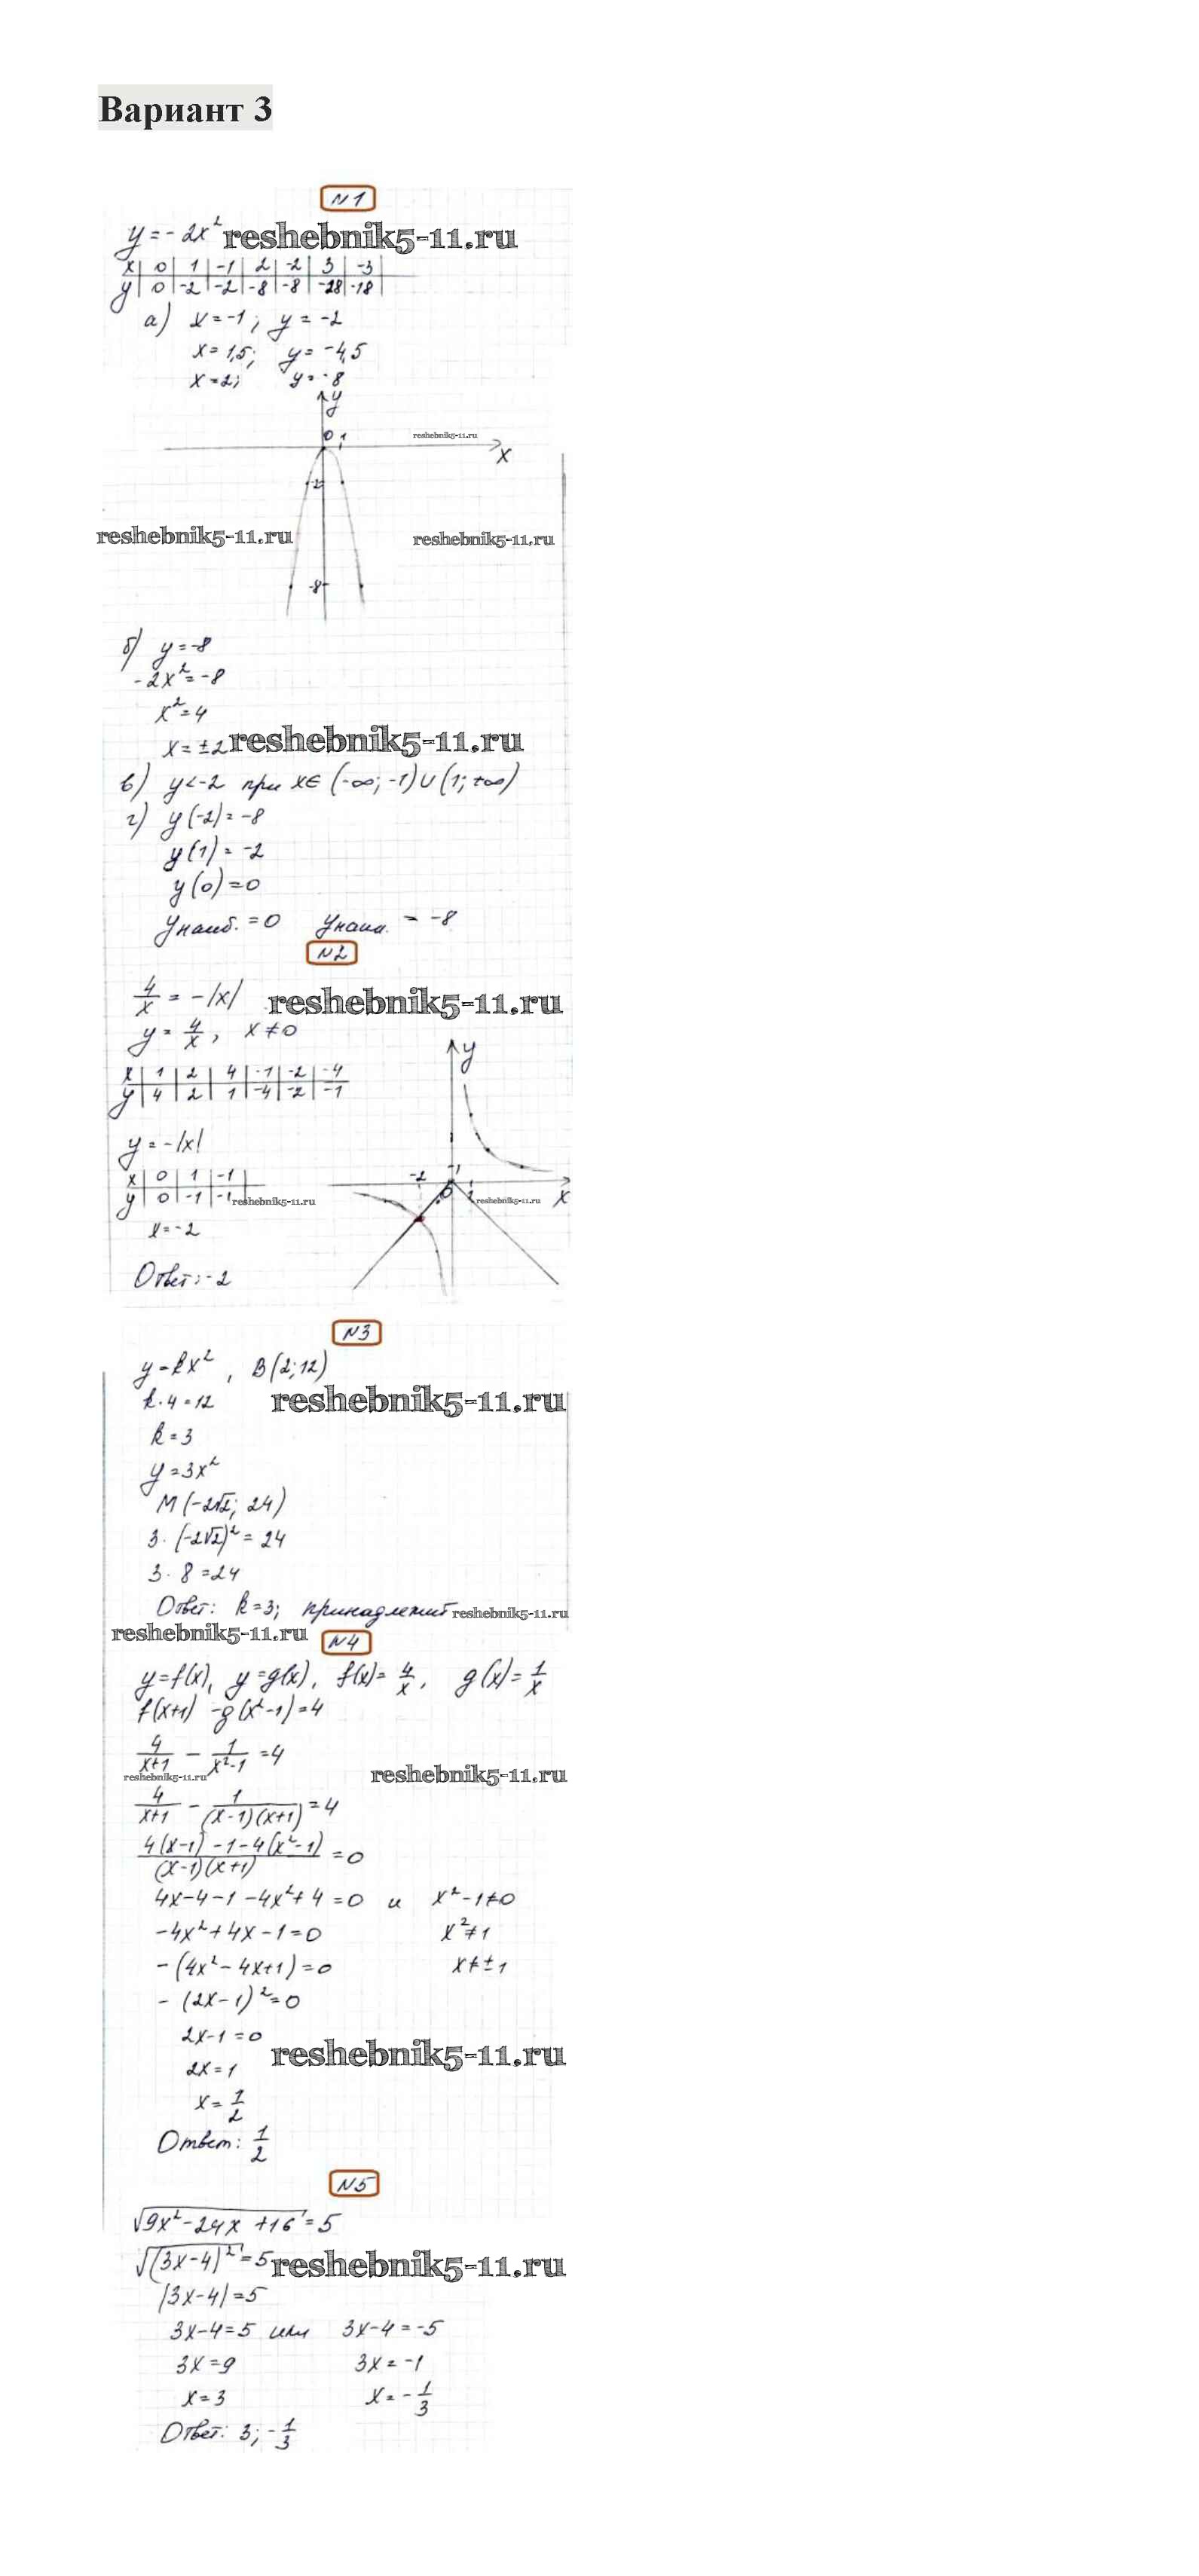 Вариант 3
№1
y = -2x² reshebnik5-11.ru
x | 0 | 1 | -1 | 2 | -2 | 3 | -3
y | 0 | -2 | -2 | -8 | -8 | -28 | -18
а) x = -1; y = -2
x = 1,5; y = -4,5
x = 2; y = -8
y
0 1 reshebnik5-11.ru
x
-2
reshebnik5-11.ru reshebnik5-11.ru
-8
б) y = -8
-2x² = -8
x² = 4
x = ±2 reshebnik5-11.ru
в) y < -2 при x ∈ (-∞; -1) ∪ (1; +∞)
г) y(-2) = -8
y(1) = -2
y(0) = 0
yнаиб. = 0 yнаим. = -8
№2
4/x = -|x| reshebnik5-11.ru
y = 4/x, x ≠ 0
x | 1 | 2 | 4 | -1 | -2 | -4
y | 4 | 2 | 1 | -4 | -2 | -1
y
y = -|x|
x | 0 | 1 | -1
y | 0 | -1 | -1 reshebnik5-11.ru
-2 1 0 1 reshebnik5-11.ru x
x = -2
Ответ: -2
№3
y = kx², B(2; 12)
k · 4 = 12 reshebnik5-11.ru
k = 3
y = 3x²
M(-2√2; 24)
3 · (-2√2)² = 24
3 · 8 = 24
Ответ: k = 3; принадлежит reshebnik5-11.ru
reshebnik5-11.ru №4
y = f(x), y = g(x), f(x) = 4/x, g(x) = 1/x
f(x+1) - g(x²-1) = 4
4/(x+1) - 1/(x²-1) = 4
reshebnik5-11.ru reshebnik5-11.ru
4/(x+1) - 1/((x-1)(x+1)) = 4
(4(x-1) - 1 - 4(x²-1))/((x-1)(x+1)) = 0
4x - 4 - 1 - 4x² + 4 = 0 и x² - 1 ≠ 0
-4x² + 4x - 1 = 0 x² ≠ 1
-(4x² - 4x + 1) = 0 x ≠ ±1
-(2x-1)² = 0
2x - 1 = 0 reshebnik5-11.ru
2x = 1
x = 1/2
Ответ: 1/2
№5
√(9x² - 24x + 16) = 5
√((3x-4)²) = 5 reshebnik5-11.ru
|3x-4| = 5
3x - 4 = 5 или 3x - 4 = -5
3x = 9 3x = -1
x = 3 x = -1/3
Ответ: 3; -1/3